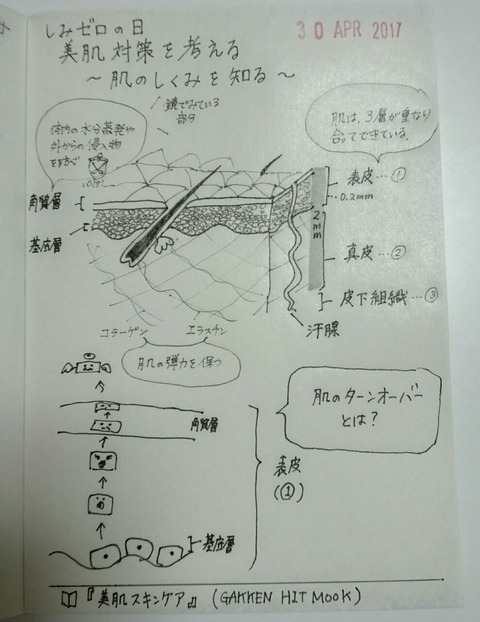 しみゼロの日
30 APR 2017
美肌対策を考える
～肌のしくみを知る～
鏡でみている
部分
体内の水分蒸発や
外からの侵入物
を防ぐ
肌は、3層が重なり
合ってできている。
角質層
基底層
表皮…①
0.2mm
2mm
真皮…②
皮下組織…③
汗腺
コラーゲン
エラスチン
肌の弾力を保つ
肌のターンオーバー
とは？
角質層
表皮
(①)
基底層
『美肌スキンケア』 (GAKKEN HIT MOOK)